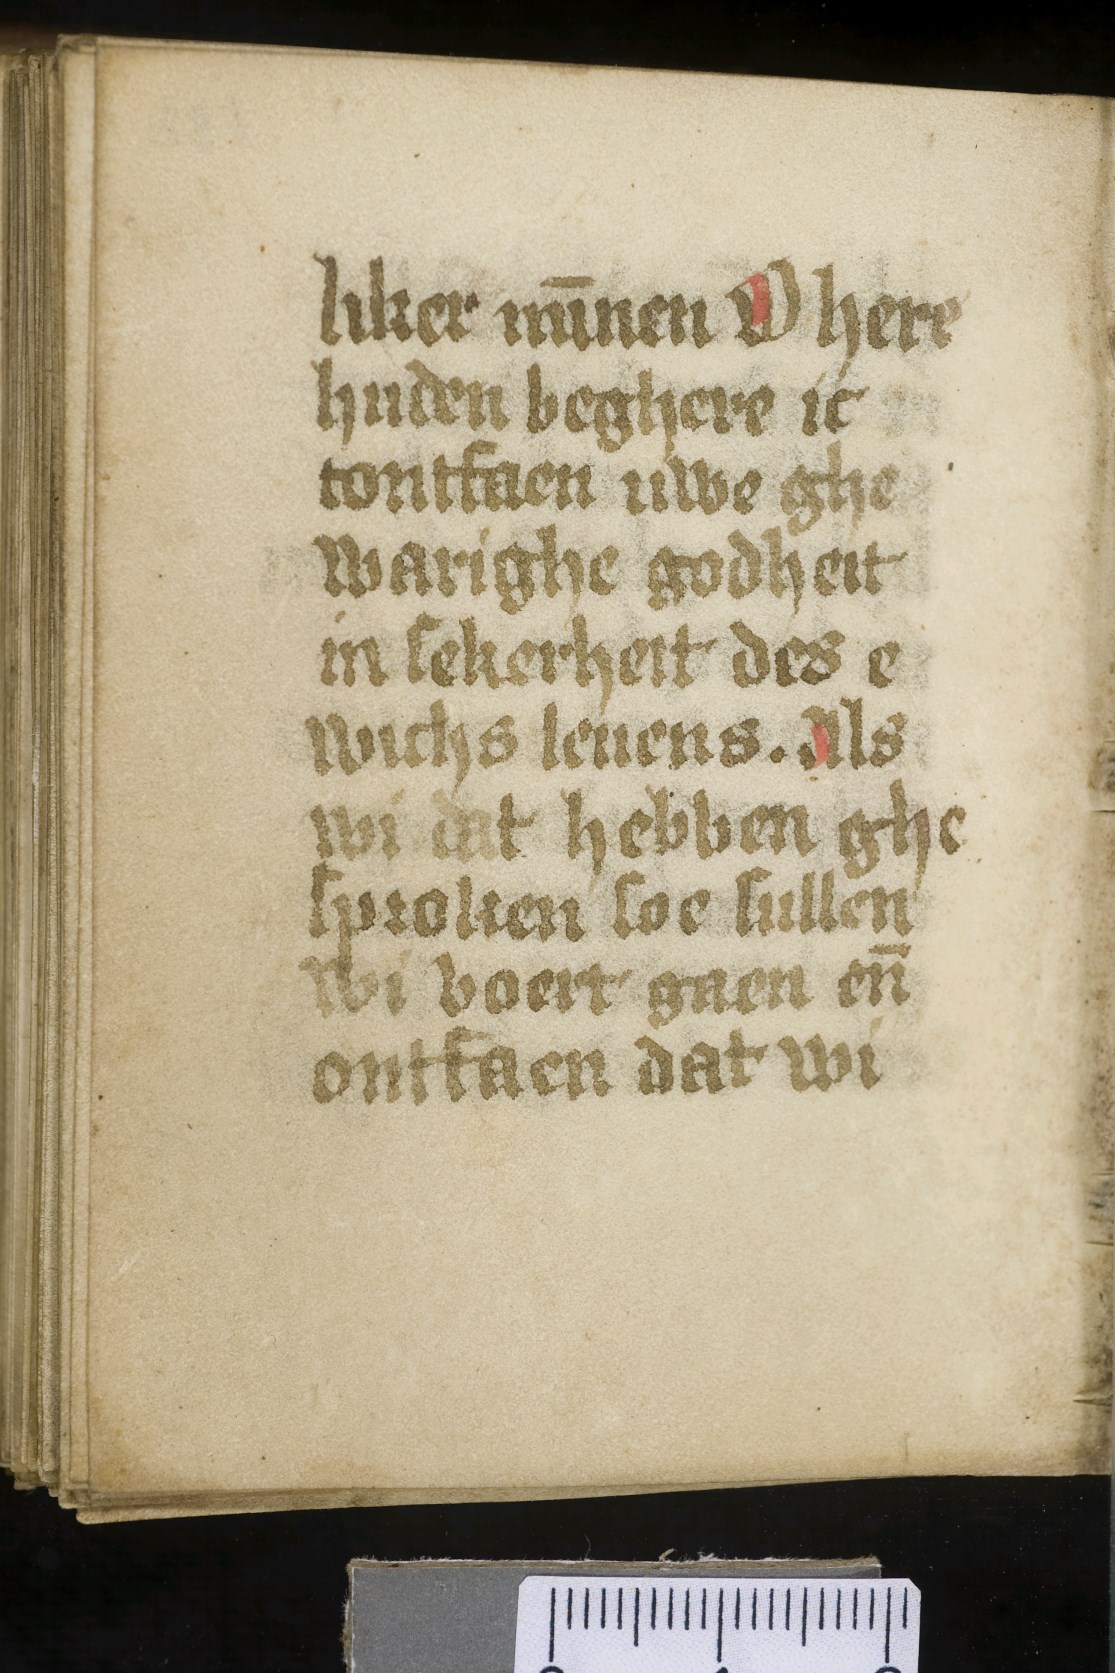 liker mīnnen O here
huden beghere ic
tontfaen uwe ghe
warighe godheit
in sekerheit des e
wichs leuens. Als
wi dat hebben ghe
sproken soe sullen
wi voert gaen en̄
ontfaen dat wi